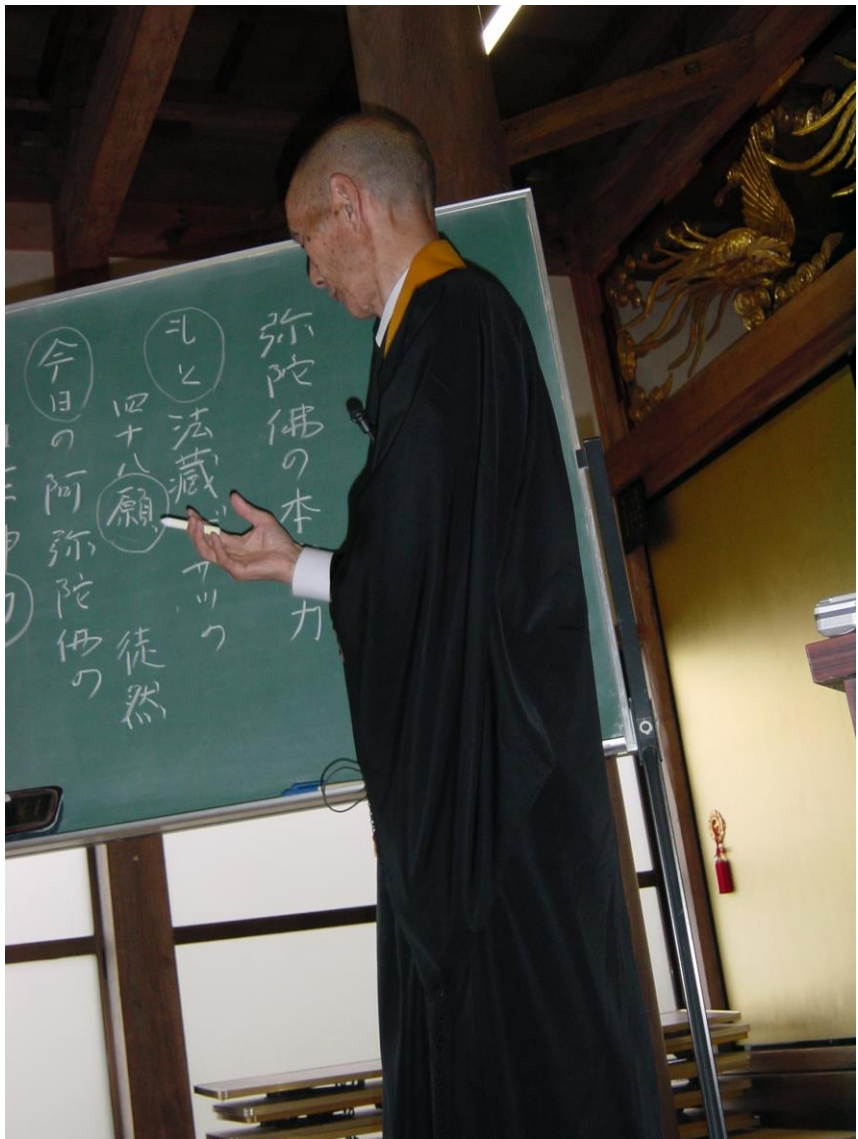 弥陀佛の本 力
もと法蔵 サツの
四十八願 徒然
今日の阿弥陀佛の